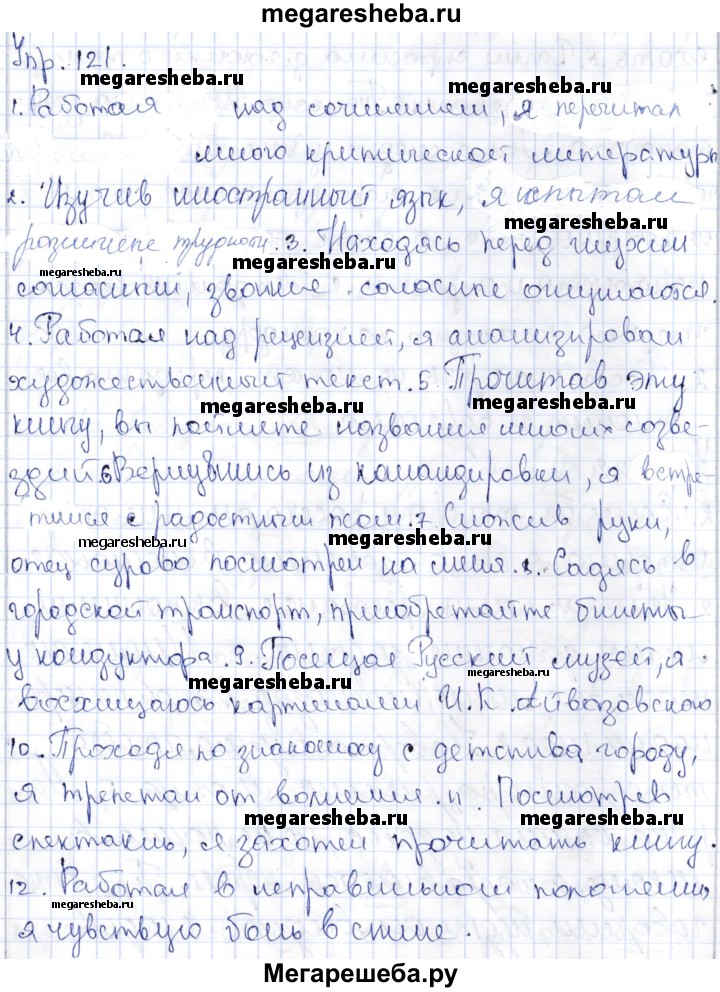 megaresheba.ru
Упр. 121.
megaresheba.ru megaresheba.ru
1. Работая над сочинением, я перечитал
много критической литературы
2. Изучив иностранный язык, я испытал
megaresheba.ru
различные трудности. 3. Находясь перед глухим
megaresheba.ru megaresheba.ru
согласным, звонкие согласные оглушаются.
4. Работая над рецензией, я анализировал
художественный текст. 5. Прочитав эту
megaresheba.ru megaresheba.ru
книгу, вы поймете названия многих созве-
здий. 6. Вернувшись из командировки, я встре-
тился с радостным псом. 7. Сложив руки,
megaresheba.ru megaresheba.ru
отец сурово посмотрел на меня. 8. Садясь в
городской транспорт, приобретайте билеты
у кондуктора. 9. Посещая Русский музей, я
megaresheba.ru megaresheba.ru
восхищаюсь картинами И.К. Айвазовского
10. Проходя по знакомому с детства городу,
я трепетал от волнения. 11. Посмотрев
megaresheba.ru megaresheba.ru
спектакль, я захотел прочитать книгу.
12. Работая в неправильном положении,
megaresheba.ru
я чувствую боль в спине.
Мегарешеба.ру